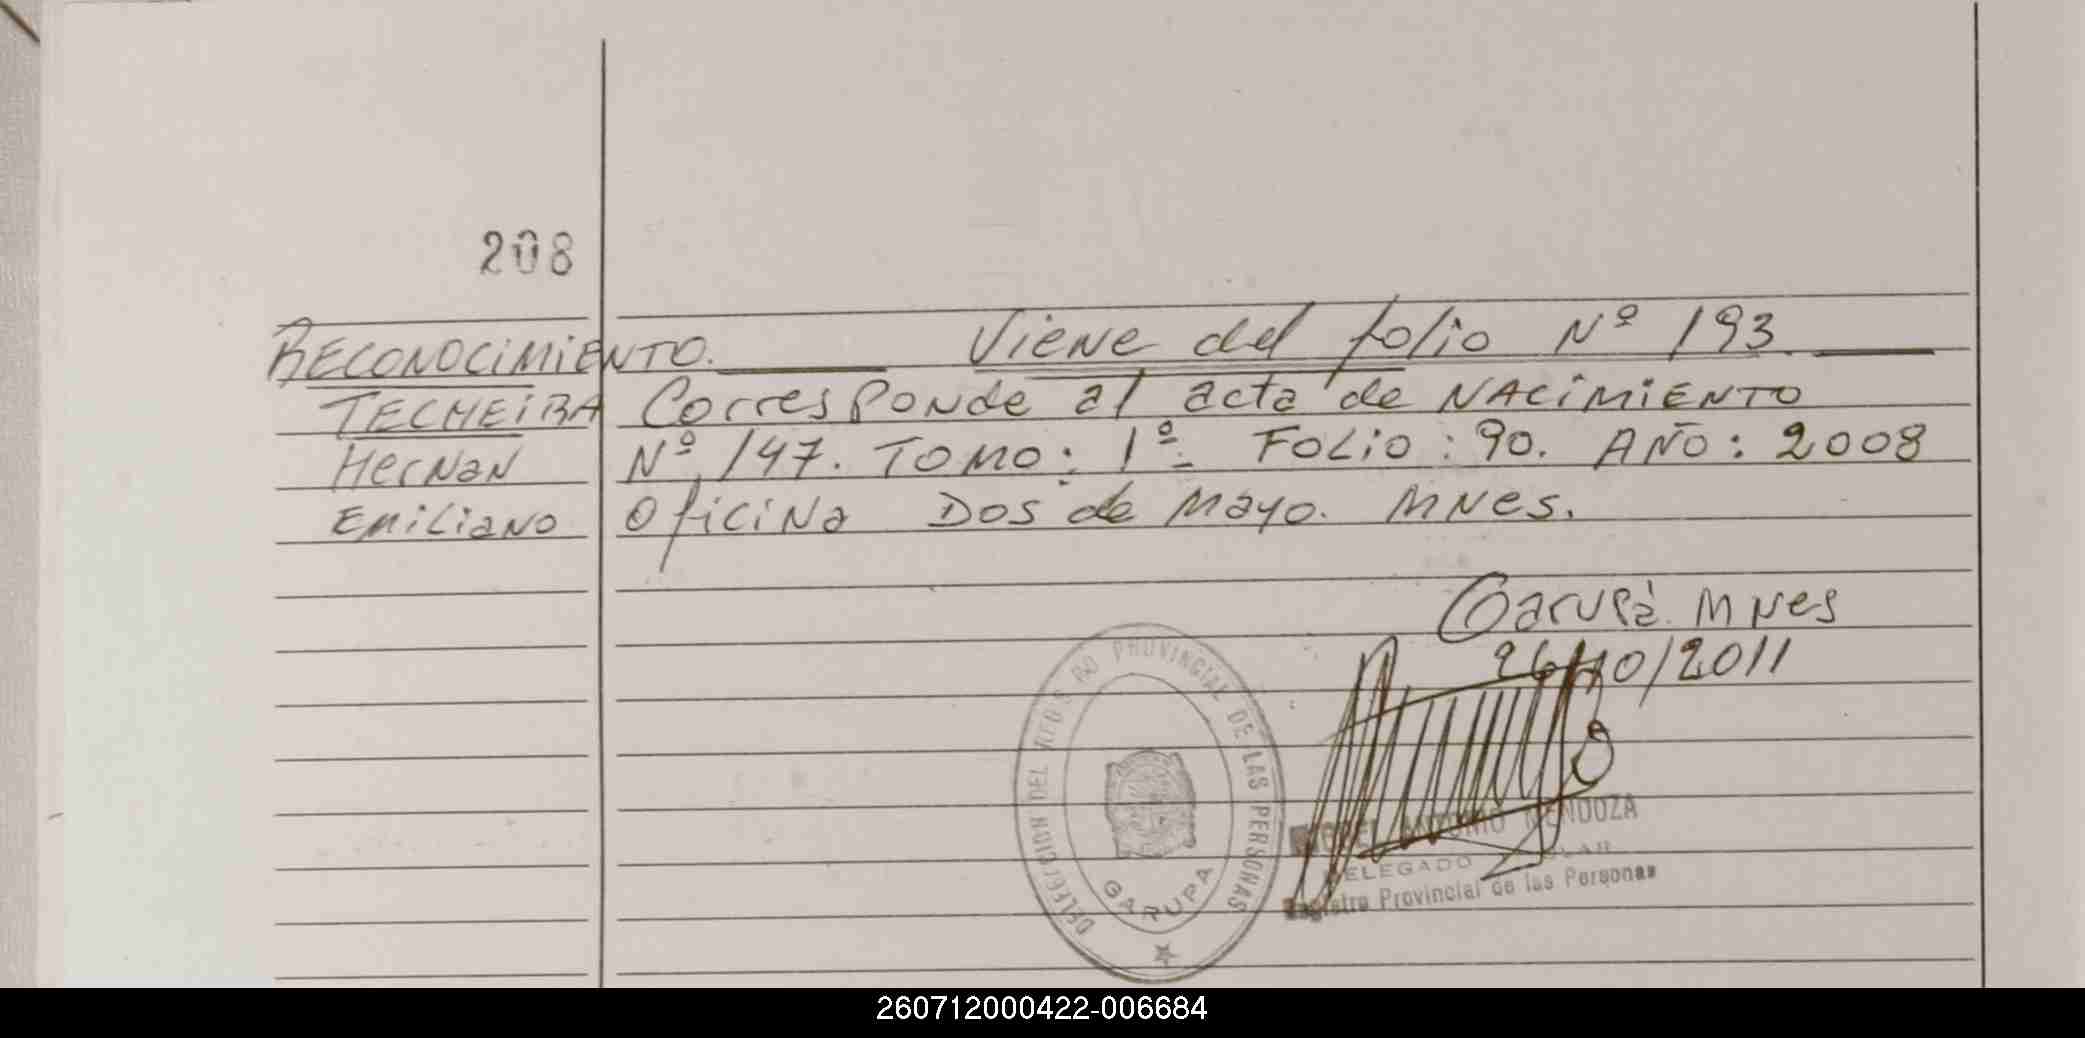 208
RECONOCIMIENTO. Viene del folio Nº 193.
TECHEIRA Corresponde al acta de NACIMIENTO
Hernan Nº 147. TOMO: 1º. FOLIO: 90. AÑO: 2008
Emiliano Oficina Dos de Mayo. MNes.
Garupá. MNes
26/10/2011
PROVINCIAL DE LAS PERSONAS
DEL
GARUPA
ANTONIO MENDOZA
DELEGADO
Registro Provincial de las Personas
260712000422-006684